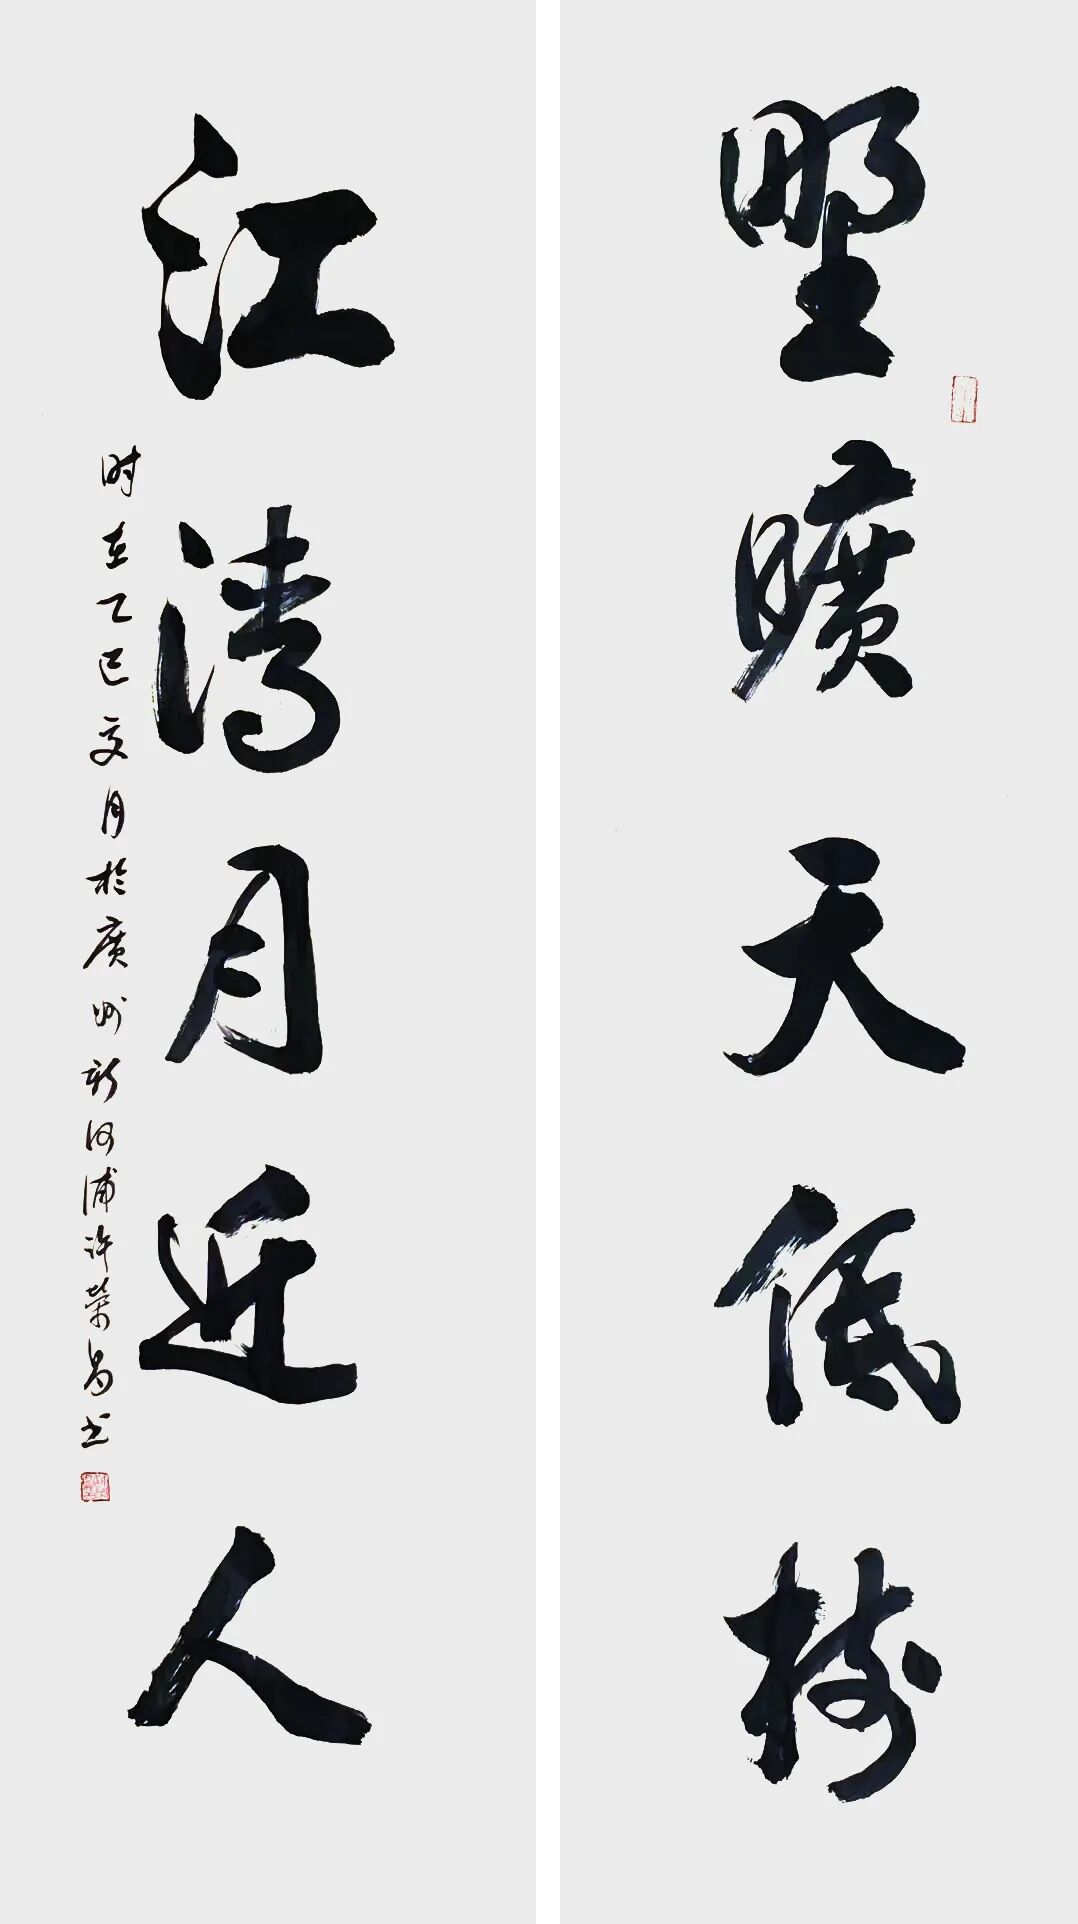 野曠天低樹
江清月近人
时在乙巳文月於廣州新河浦许荣昌书